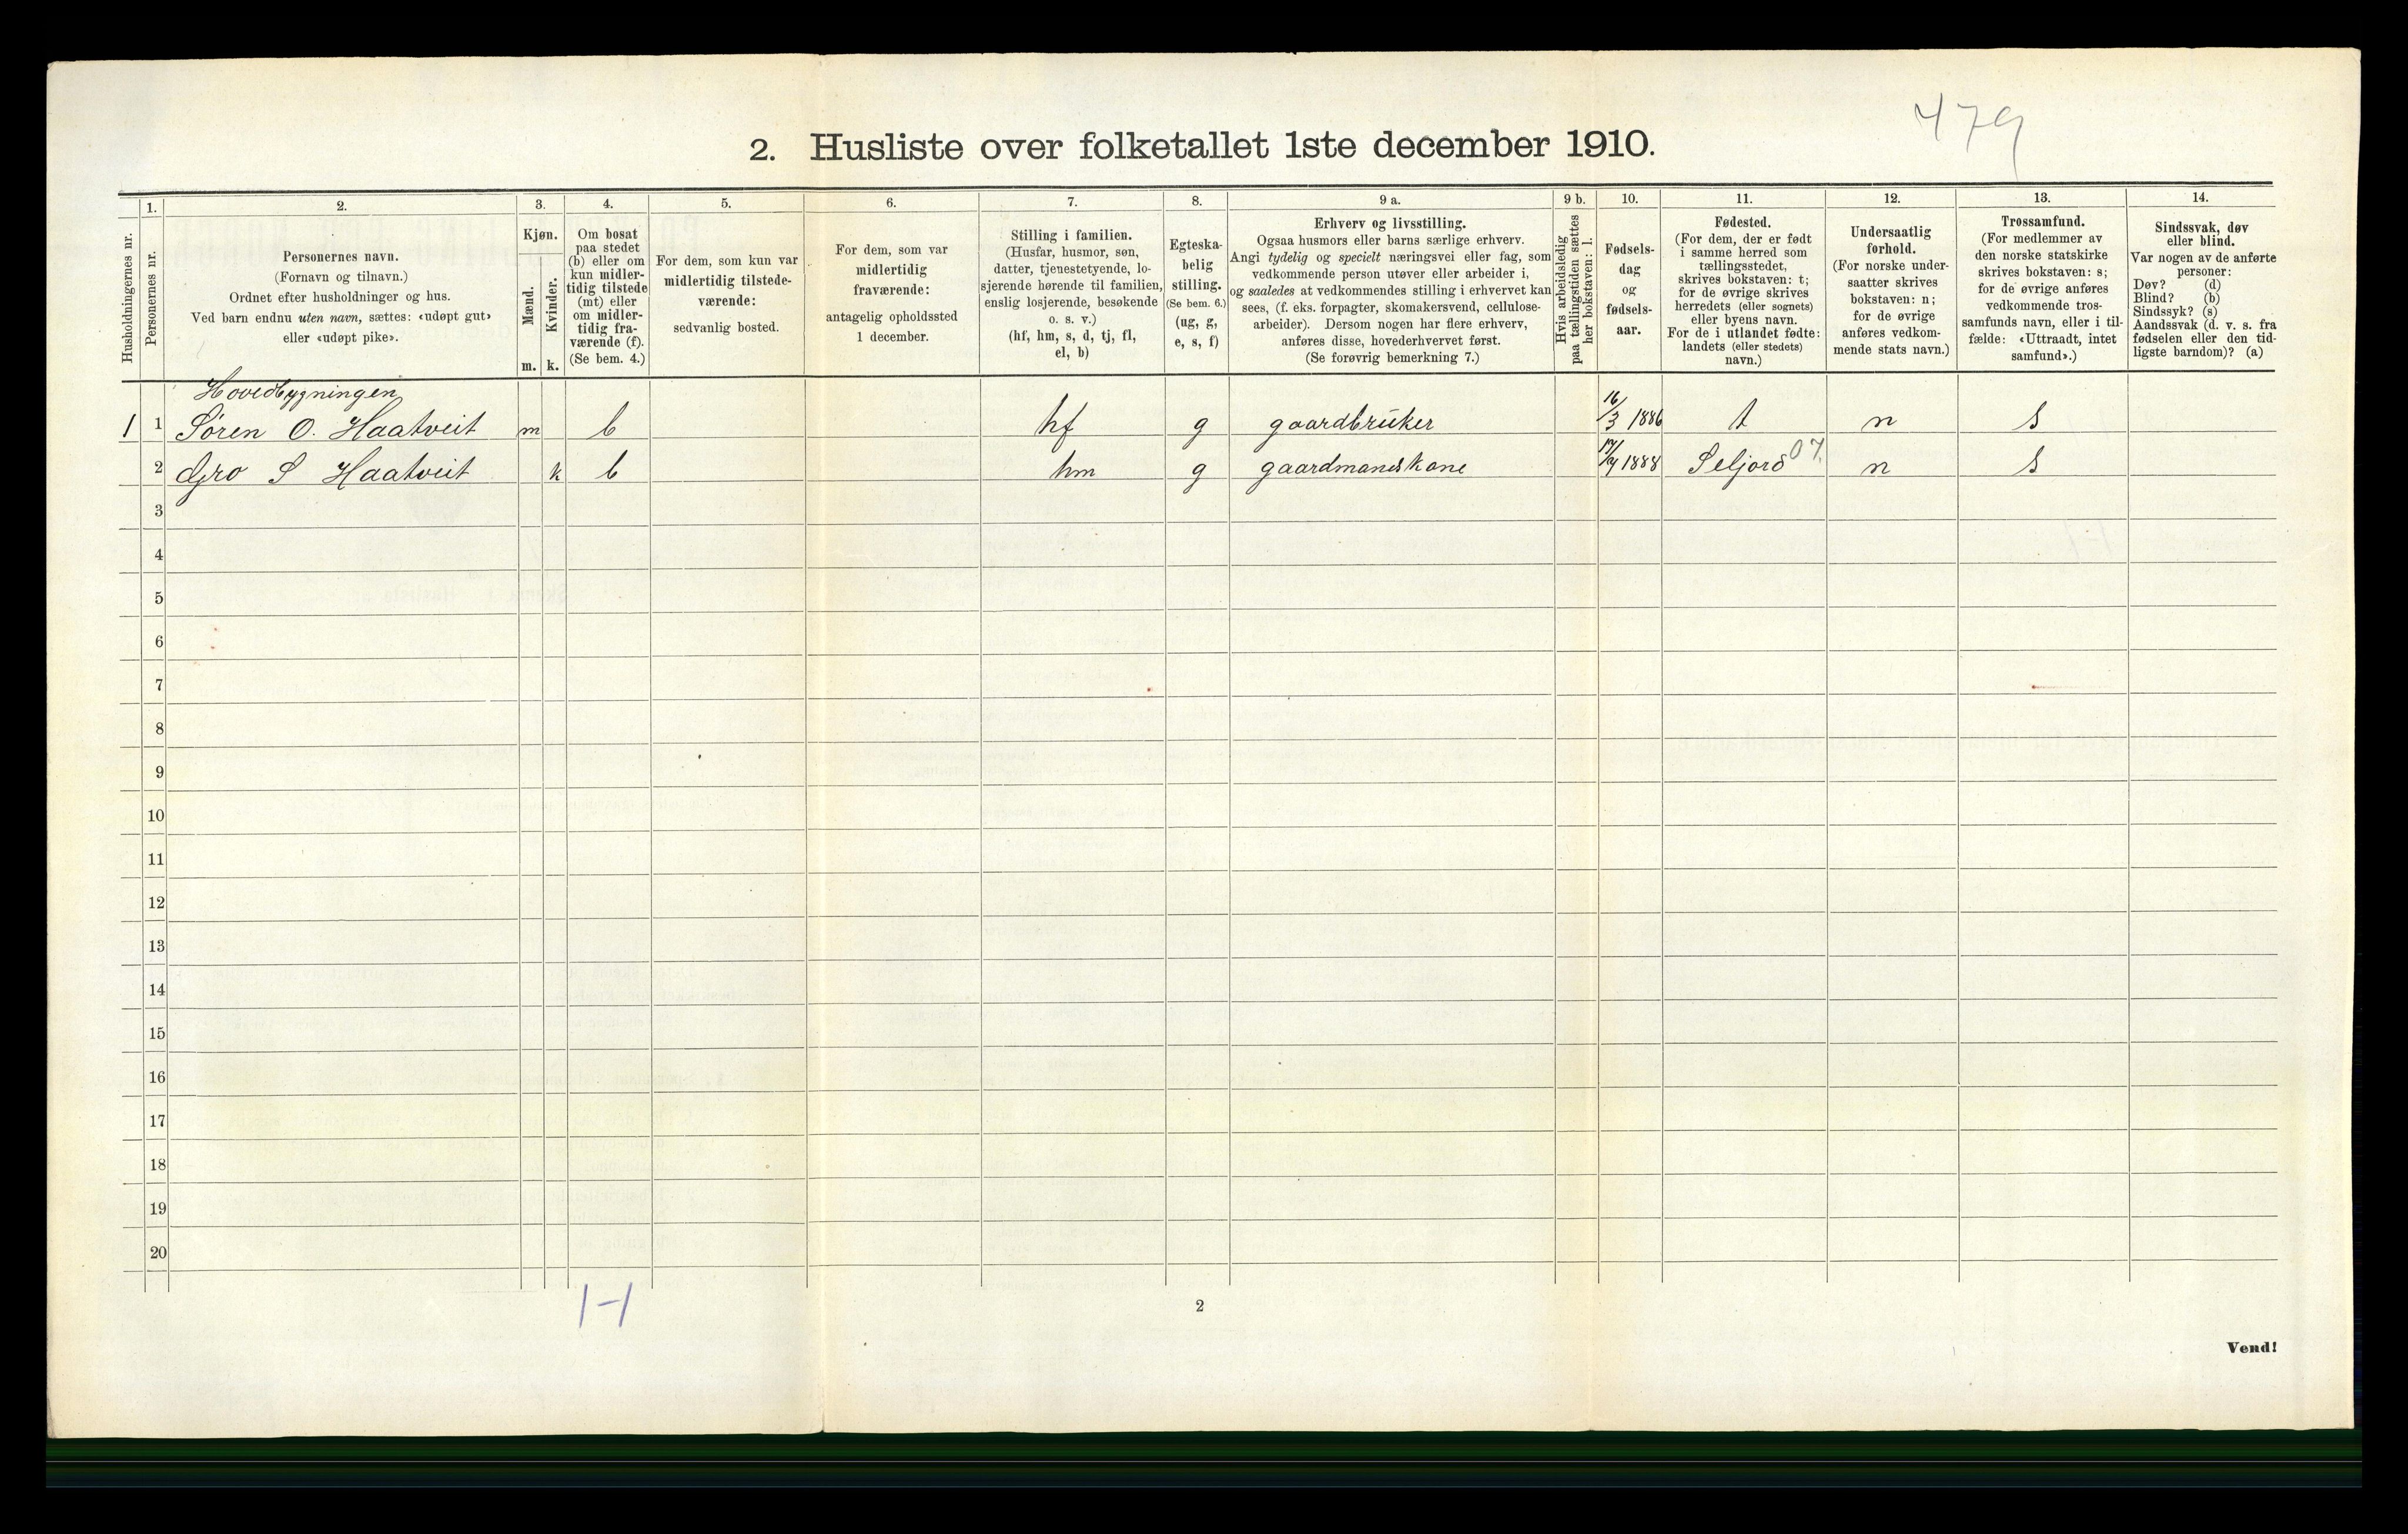 479
2. Husliste over folketallet 1ste december 1910.
Husholdningernes nr.
1.
Personernes nr.
2.
Personernes navn.
(Fornavn og tilnavn.)
Ordnet efter husholdninger og hus.
Ved barn endnu uten navn, sættes: «udøpt gut»
eller «udøpt pike».
3.
Kjøn.
Mænd.
Kvinder.
m. k.
4.
Om bosat
paa stedet
(b) eller om
kun midler-
tidig tilstede
(mt) eller
om midler-
tidig fra-
værende (f).
(Se bem. 4.)
5.
For dem, som kun var
midlertidig tilstede-
værende:
sedvanlig bosted.
6.
For dem, som var
midlertidig
fraværende:
antagelig opholdssted
1 december.
7.
Stilling i familien.
(Husfar, husmor, søn,
datter, tjenestetyende, lo-
sjerende hørende til familien,
enslig losjerende, besøkende
o. s. v.)
(hf, hm, s, d, tj, fl,
el, b)
8.
Egteska-
belig
stilling.
(Se bem. 6.)
(ug, g,
e, s, f)
9 a.
Erhverv og livsstilling.
Ogsaa husmors eller barns særlige erhverv.
Angi tydelig og specielt næringsvei eller fag, som
vedkommende person utøver eller arbeider i,
og saaledes at vedkommendes stilling i erhvervet kan
sees, (f. eks. forpagter, skomakersvend, cellulose-
arbeider). Dersom nogen har flere erhverv,
anføres disse, hovederhvervet først.
(Se forøvrig bemerkning 7.)
9 b.
Hvis arbeidsledig
paa tællingstiden sættes
her bokstaven: l.
10.
Fødsels-
dag
og
fødsels-
aar.
11.
Fødested.
(For dem, der er født
i samme herred som
tællingsstedet,
skrives bokstaven: t;
for de øvrige skrives
herredets (eller sognets)
eller byens navn.
For de i utlandet fødte:
landets (eller stedets)
navn.)
12.
Undersaatlig
forhold.
(For norske under-
saatter skrives
bokstaven: n;
for de øvrige
anføres vedkom-
mende stats navn.)
13.
Trossamfund.
(For medlemmer av
den norske statskirke
skrives bokstaven: s;
for de øvrige anføres
vedkommende tros-
samfunds navn, eller i til-
fælde: «Uttraadt, intet
samfund».)
14.
Sindssvak, døv
eller blind.
Var nogen av de anførte
personer:
Døv? (d)
Blind? (b)
Sindssyk? (s)
Aandssvak (d. v. s. fra
fødselen eller den tid-
ligste barndom)? (a)
Hovedbygningen
1 1 Søren O. Haatveit m b hf g gaardbruker 16/3 1886 t n s
2 Gro S Haatveit k b hm g gaardmandskone 1888 Seljord 07. n s
3
4
5
6
7
8
9
10
11
12
13
14
15
16
17
18
19
20
1-1
2
Vend!